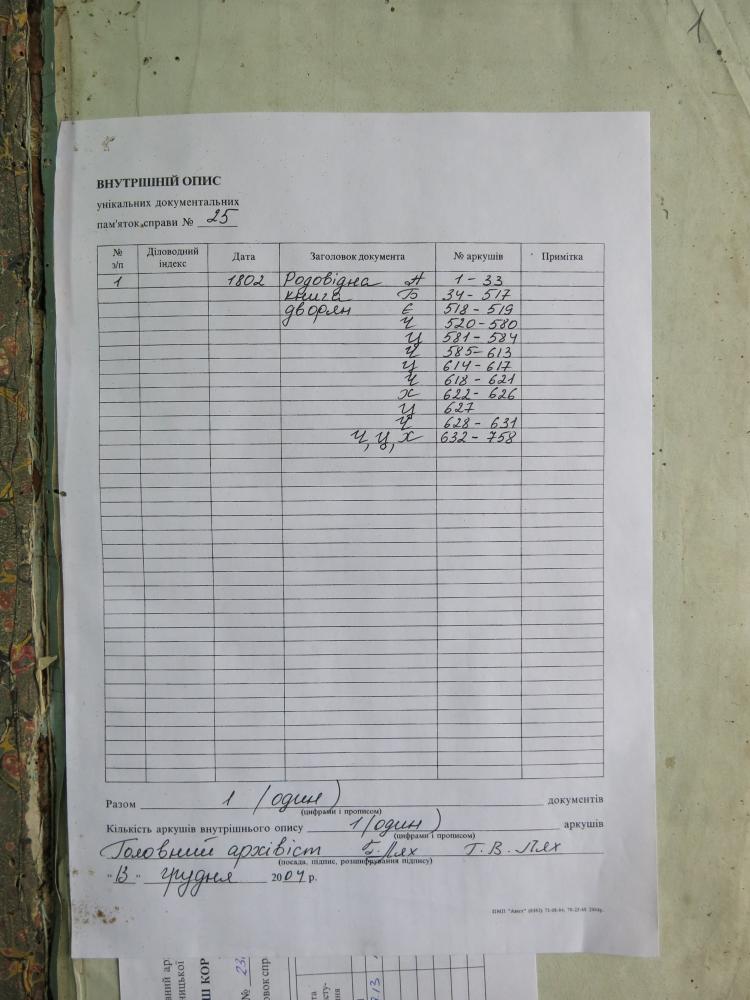 1
ВНУТРІШНІЙ ОПИС
унікальних документальних
пам'яток справи № 25
№ з/п Діловодний індекс Дата Заголовок документа № аркушів Примітка
1 1802 Родовідна А 1 - 33
книга Б 34 - 517
дворян Є 518 - 519
Ч 520 - 580
Ц 581 - 584
Ч 585 - 613
Ц 614 - 617
Ч 618 - 621
Х 622 - 626
Ц 627
Ч 628 - 631
Ч, Ц, Х 632 - 758
Разом 1 (один) документів
(цифрами і прописом)
Кількість аркушів внутрішнього опису 1 (один) аркушів
(цифрами і прописом)
Головний архівіст Г. Лях Т. В. Лях
(посада, підпис, розшифрування підпису)
" 13 " грудня 2004 р.
ПМП "Авіст"
№ 23